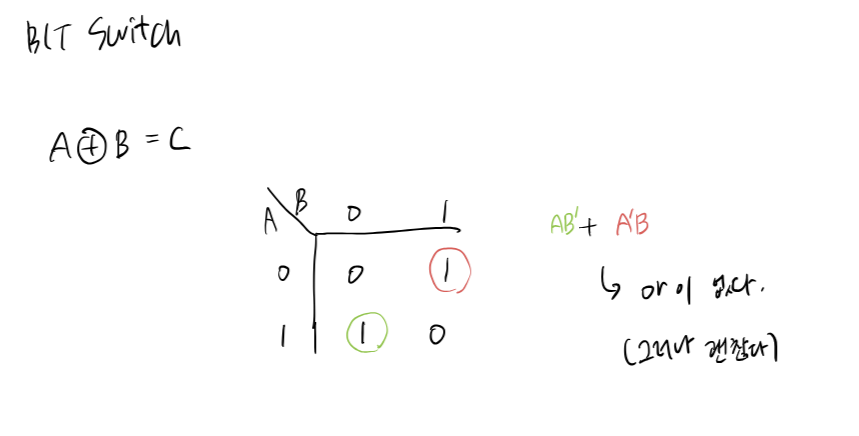 BIT Switch
A⊕B = C
A\B 0 1
0 0 1
1 1 0
AB' + A'B
↳ or이 없다.
(그러나 괜찮다)